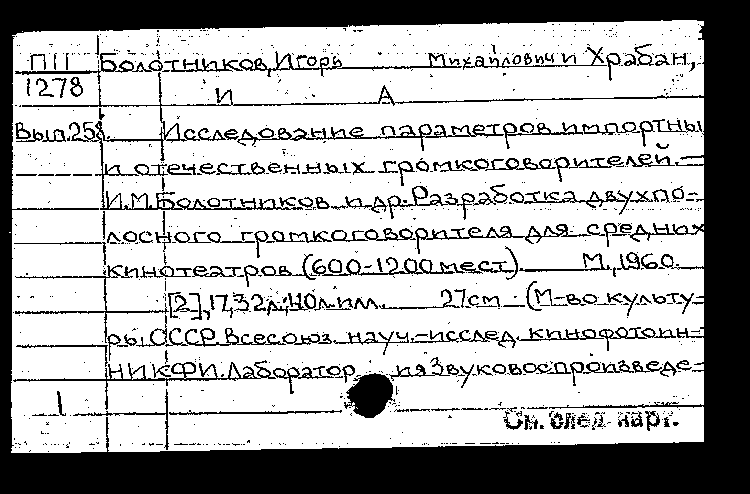 П11 Болотников, Игорь Михайлович и Храбан,
1278 И А
Вып.258. Исследование параметров импортны
и отечественных громкоговорителей.—
И.М.Болотников и др. Разработка двухпо-
лосного громкоговорителя для средних
кинотеатров (600-1200 мест). М., 1960.
[2], 17, 32 л.; 40 л. илл. 27см (М-во культу-
ры СССР. Всесоюз. науч.-исслед. кинофотоин-т
НИКФИ. Лаборатор ия Звуковоспроизведе-
1
См. след. карт.